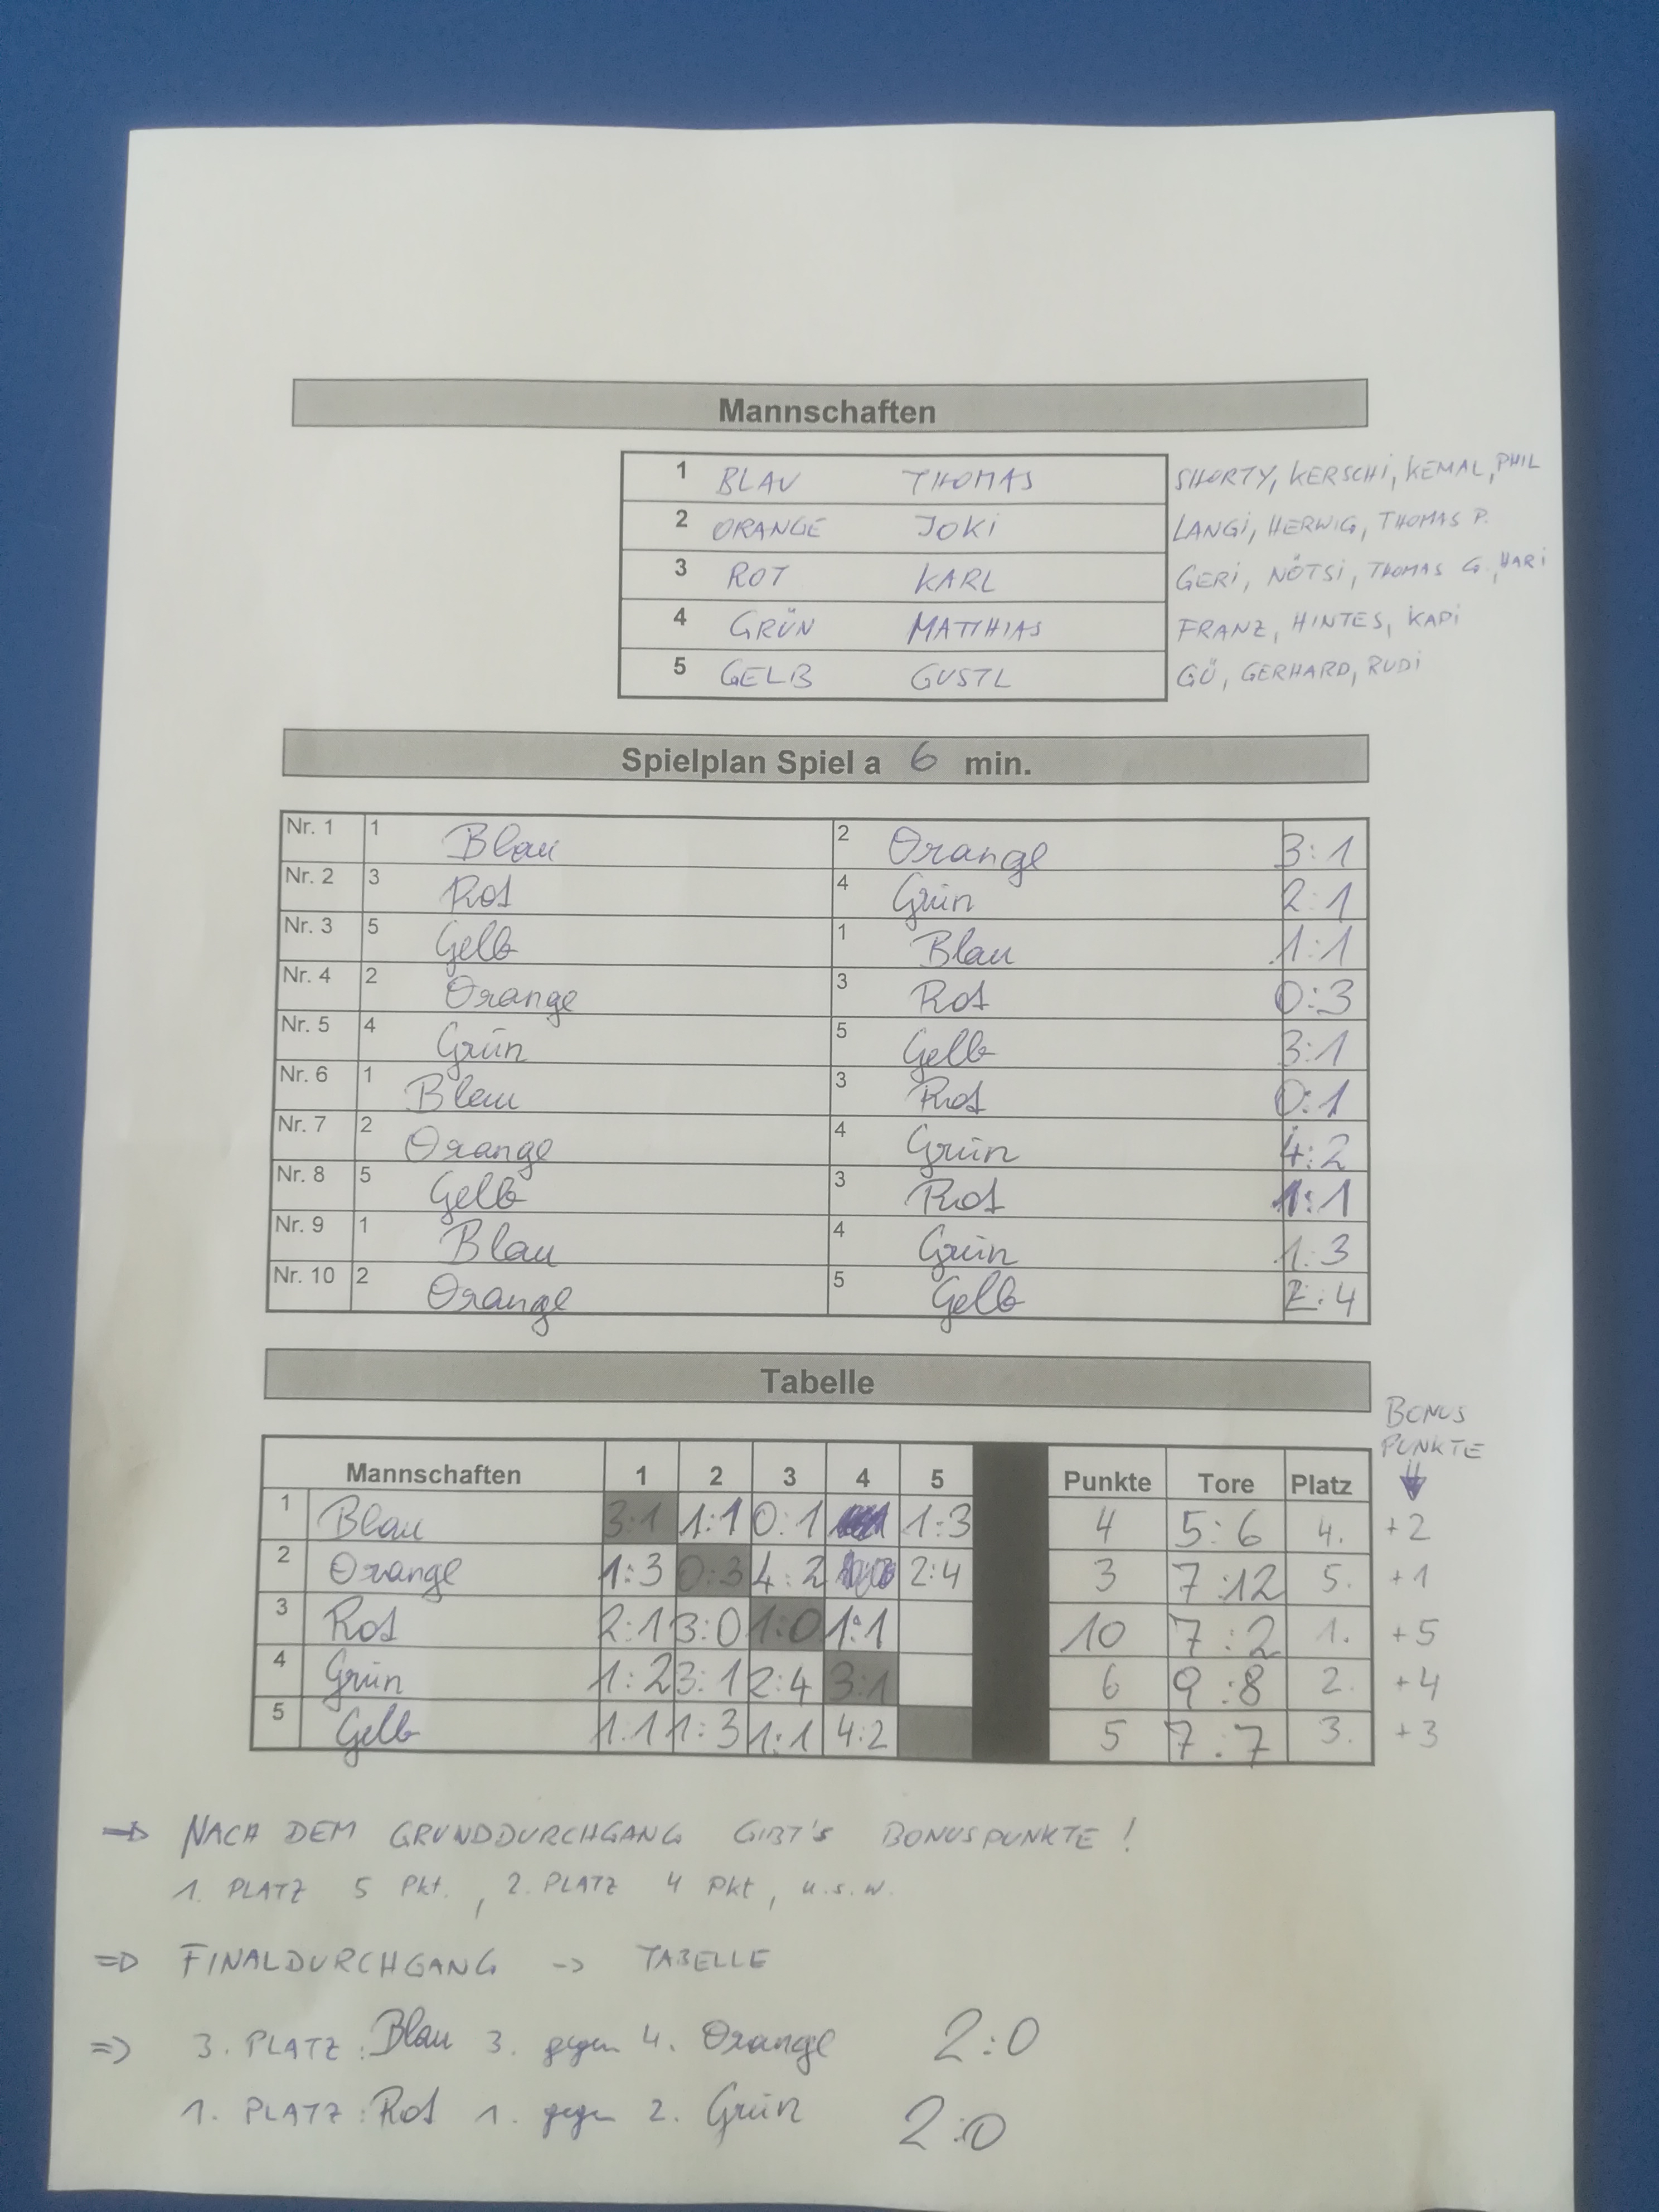 Mannschaften
1 BLAU THOMAS SHORTY, KERSCHI, KEMAL, PHIL
2 ORANGE JOKI LANGI, HERWIG, THOMAS P.
3 ROT KARL GERI, NÖTSI, THOMAS G., HARI
4 GRÜN MATTHIAS FRANZ, HINTES, KAPI
5 GELB GUSTL GÜ, GERHARD, RUDI
Spielplan Spiel a 6 min.
Nr. 1 1 Blau 2 Orange 3:1
Nr. 2 3 Rot 4 Grün 2:1
Nr. 3 5 Gelb 1 Blau 1:1
Nr. 4 2 Orange 3 Rot 0:3
Nr. 5 4 Grün 5 Gelb 3:1
Nr. 6 1 Blau 3 Rot 0:1
Nr. 7 2 Orange 4 Grün 4:2
Nr. 8 5 Gelb 3 Rot 1:1
Nr. 9 1 Blau 4 Grün 1:3
Nr. 10 2 Orange 5 Gelb 2:4
Tabelle
BONUS
PUNKTE
Mannschaften 1 2 3 4 5 Punkte Tore Platz
1 Blau 3:1 1:1 0:1 1:3 4 5:6 4. +2
2 Orange 1:3 0:3 4:2 2:4 3 7:12 5. +1
3 Rot 2:1 3:0 1:0 1:1 10 7:2 1. +5
4 Grün 1:2 3:1 2:4 3:1 6 9:8 2. +4
5 Gelb 1:1 1:3 1:1 4:2 5 7:7 3. +3
⇒ NACH DEM GRUNDDURCHGANG GIBT'S BONUSPUNKTE!
1. PLATZ 5 Pkt., 2. PLATZ 4 Pkt, u.s.w.
⇒ FINALDURCHGANG -> TABELLE
⇒ 3. PLATZ: Blau 3. gegen 4. Orange 2:0
1. PLATZ: Rot 1. gegen 2. Grün 2:0